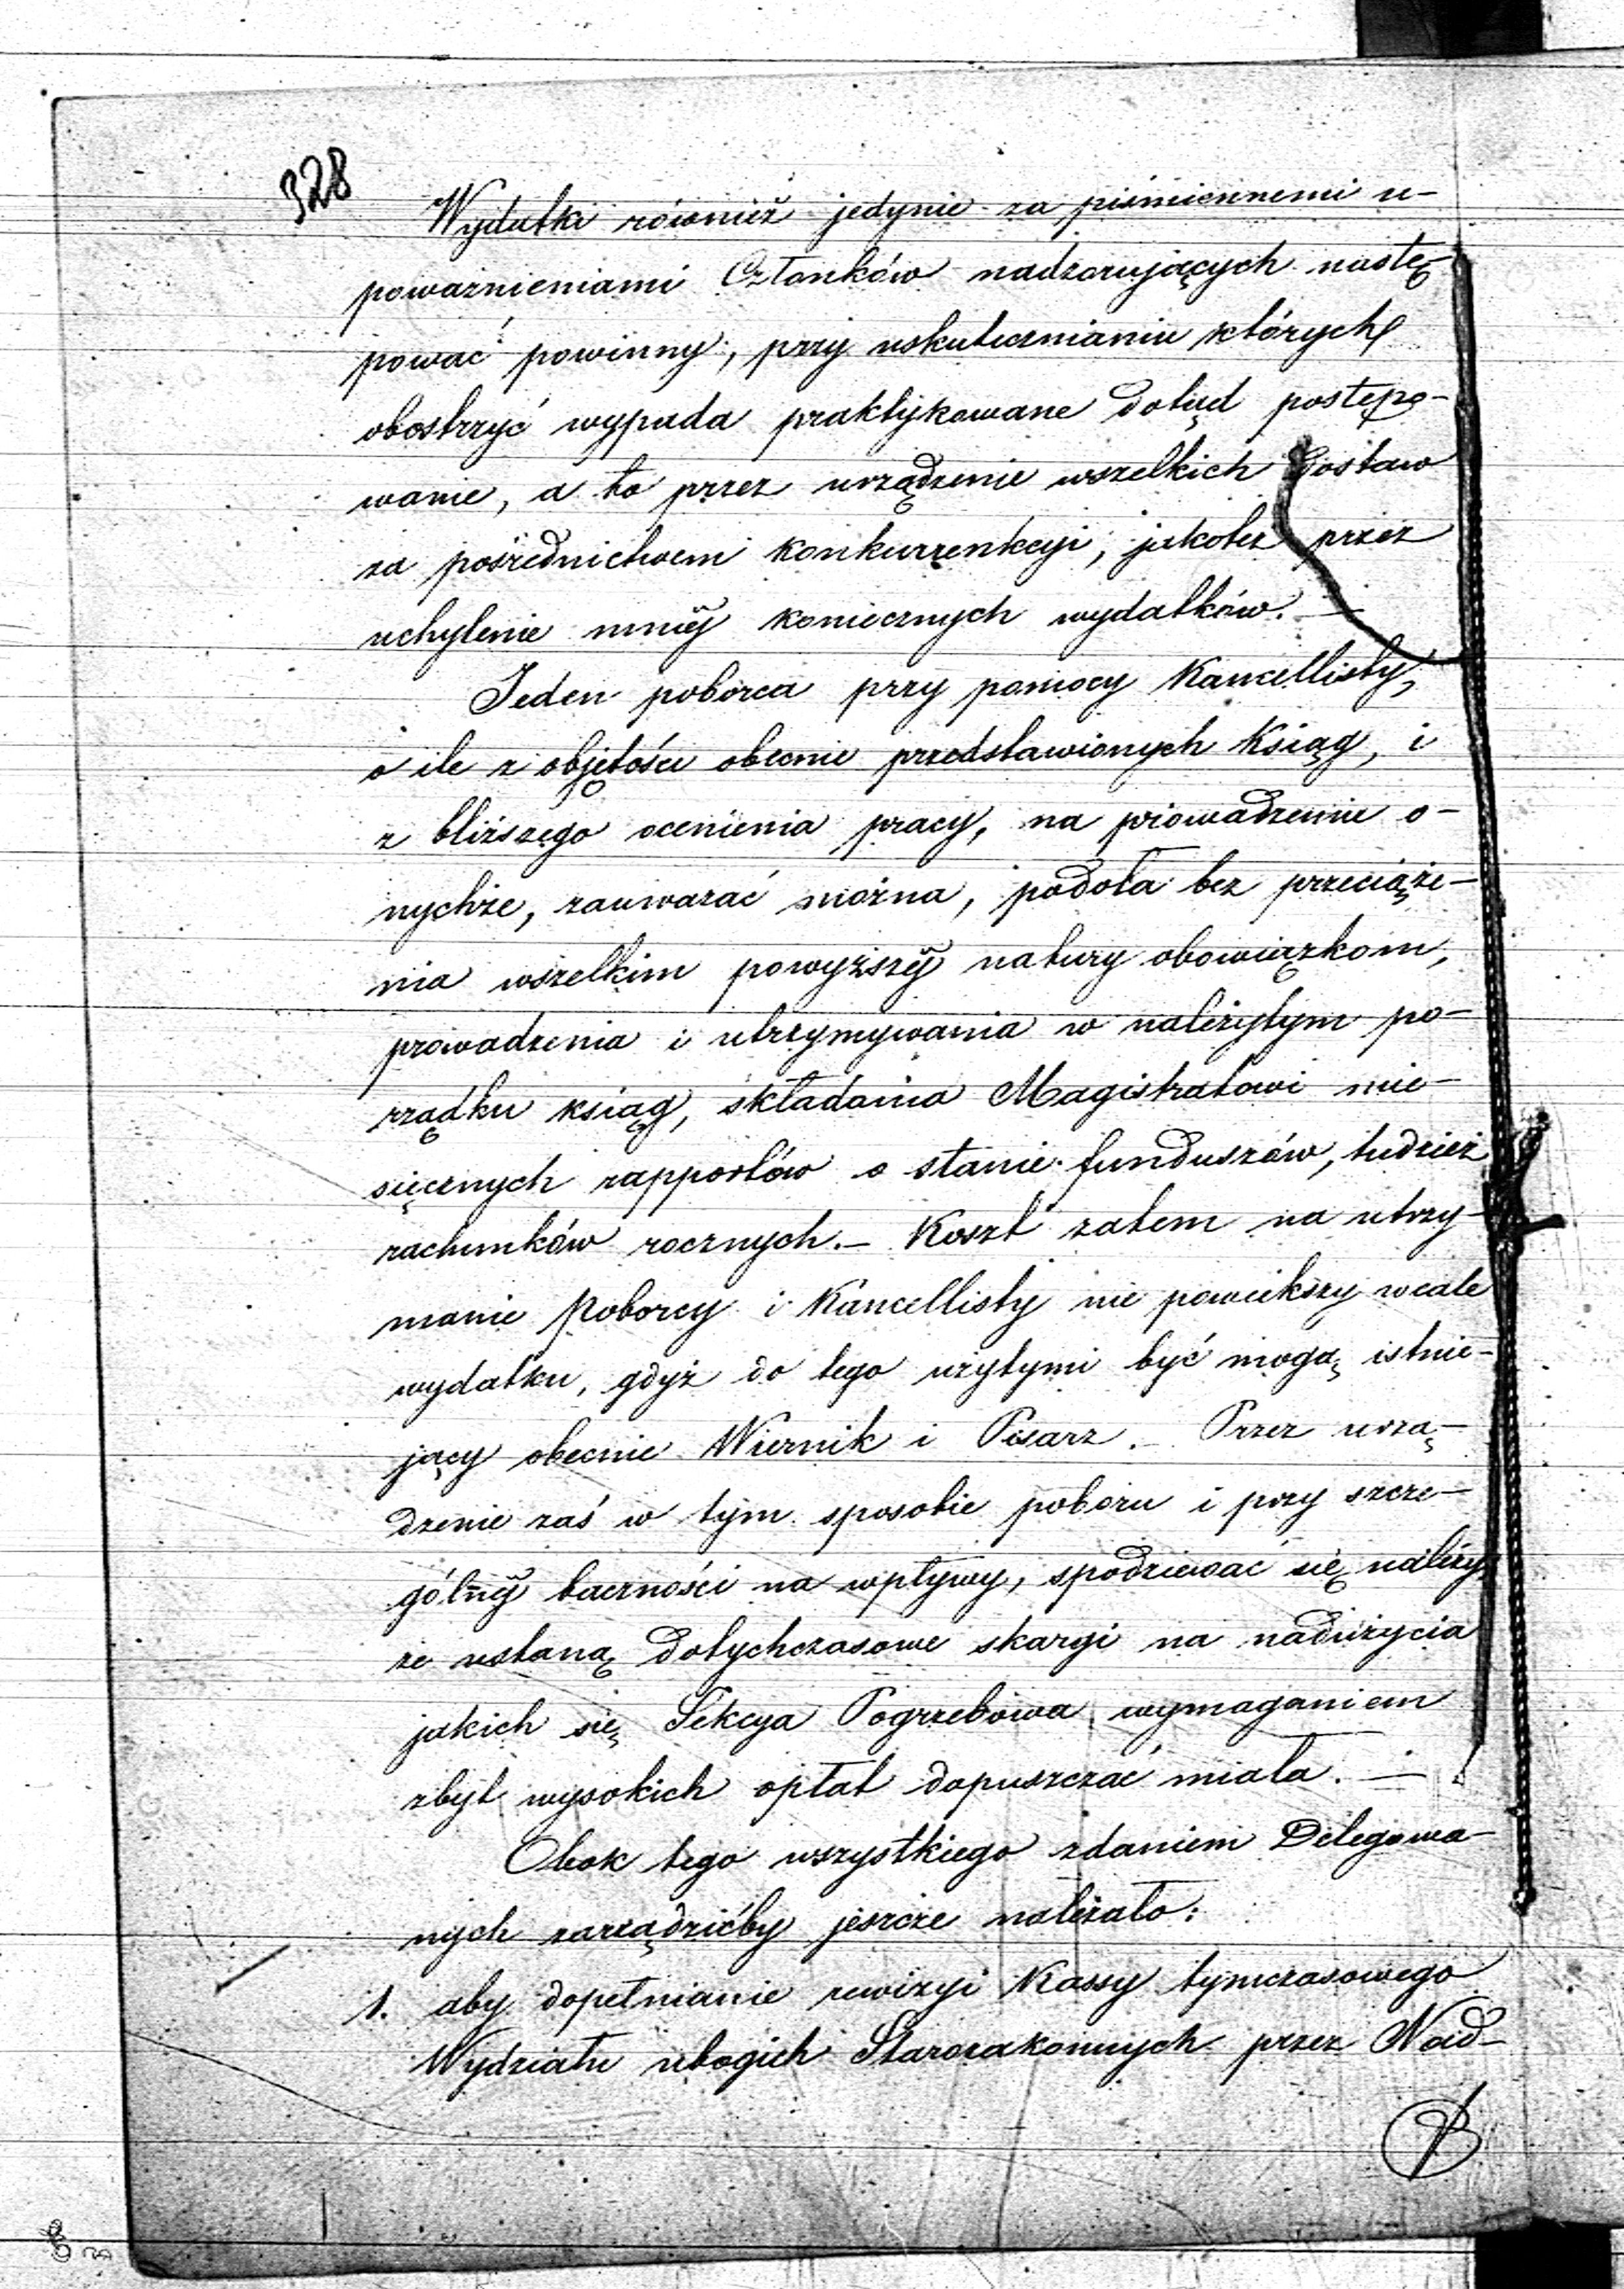 328
Wydatki również jedynie za piśmiennemi u-
poważnieniami Członków nadzorujących nastę-
pować powinny, przy uskutecznianiu których
obostrzyć wypada praktykowane dotąd postępo-
wanie, a to przez urządzenie wszelkich dostaw
za pośrednictwem konkurrenkcyi, jakoteż przez
uchylenie mniéj koniecznych wydatków. —
Jeden poborca przy pomocy Kancellisty,
o ile z objętości obecnie przedstawionych Ksiąg, i
z bliższego ocenienia pracy, na prowadzenie o-
nychże, zauważać można, podoła bez przeciąże-
nia wszelkim powyższéj natury obowiązkom,
prowadzenia i utrzymywania w należytym po-
rządku ksiąg, składania Magistratowi mie-
sięcznych rapportów o stanie funduszów, tudzież
rachunków rocznych. — Koszt zatem na utrzy-
manie Poborcy i Kancellisty nie powiekszy wcale
wydatku, gdyż do tego użytymi być mogą istnie-
jący obecnie Wiernik i Pisarz. — Przez urzą-
dzenie zaś w tym sposobie poboru i przy szcze-
gólnéj baczności na wpływy, spodziewać się należy
że ustaną dotychczasowe skargi na nadużycia
jakich się Sekcya Pogrzebowa wymaganiem
zbyt wysokich opłat dopuszczać miała. —
Obok tego wszystkiego zdaniem Delegowa-
nych zarządzićby jeszcze należało:
1. aby dopełnianie rewizyi Kassy tymczasowego
Wydziału ubogich Starozakonnych przez Nad-